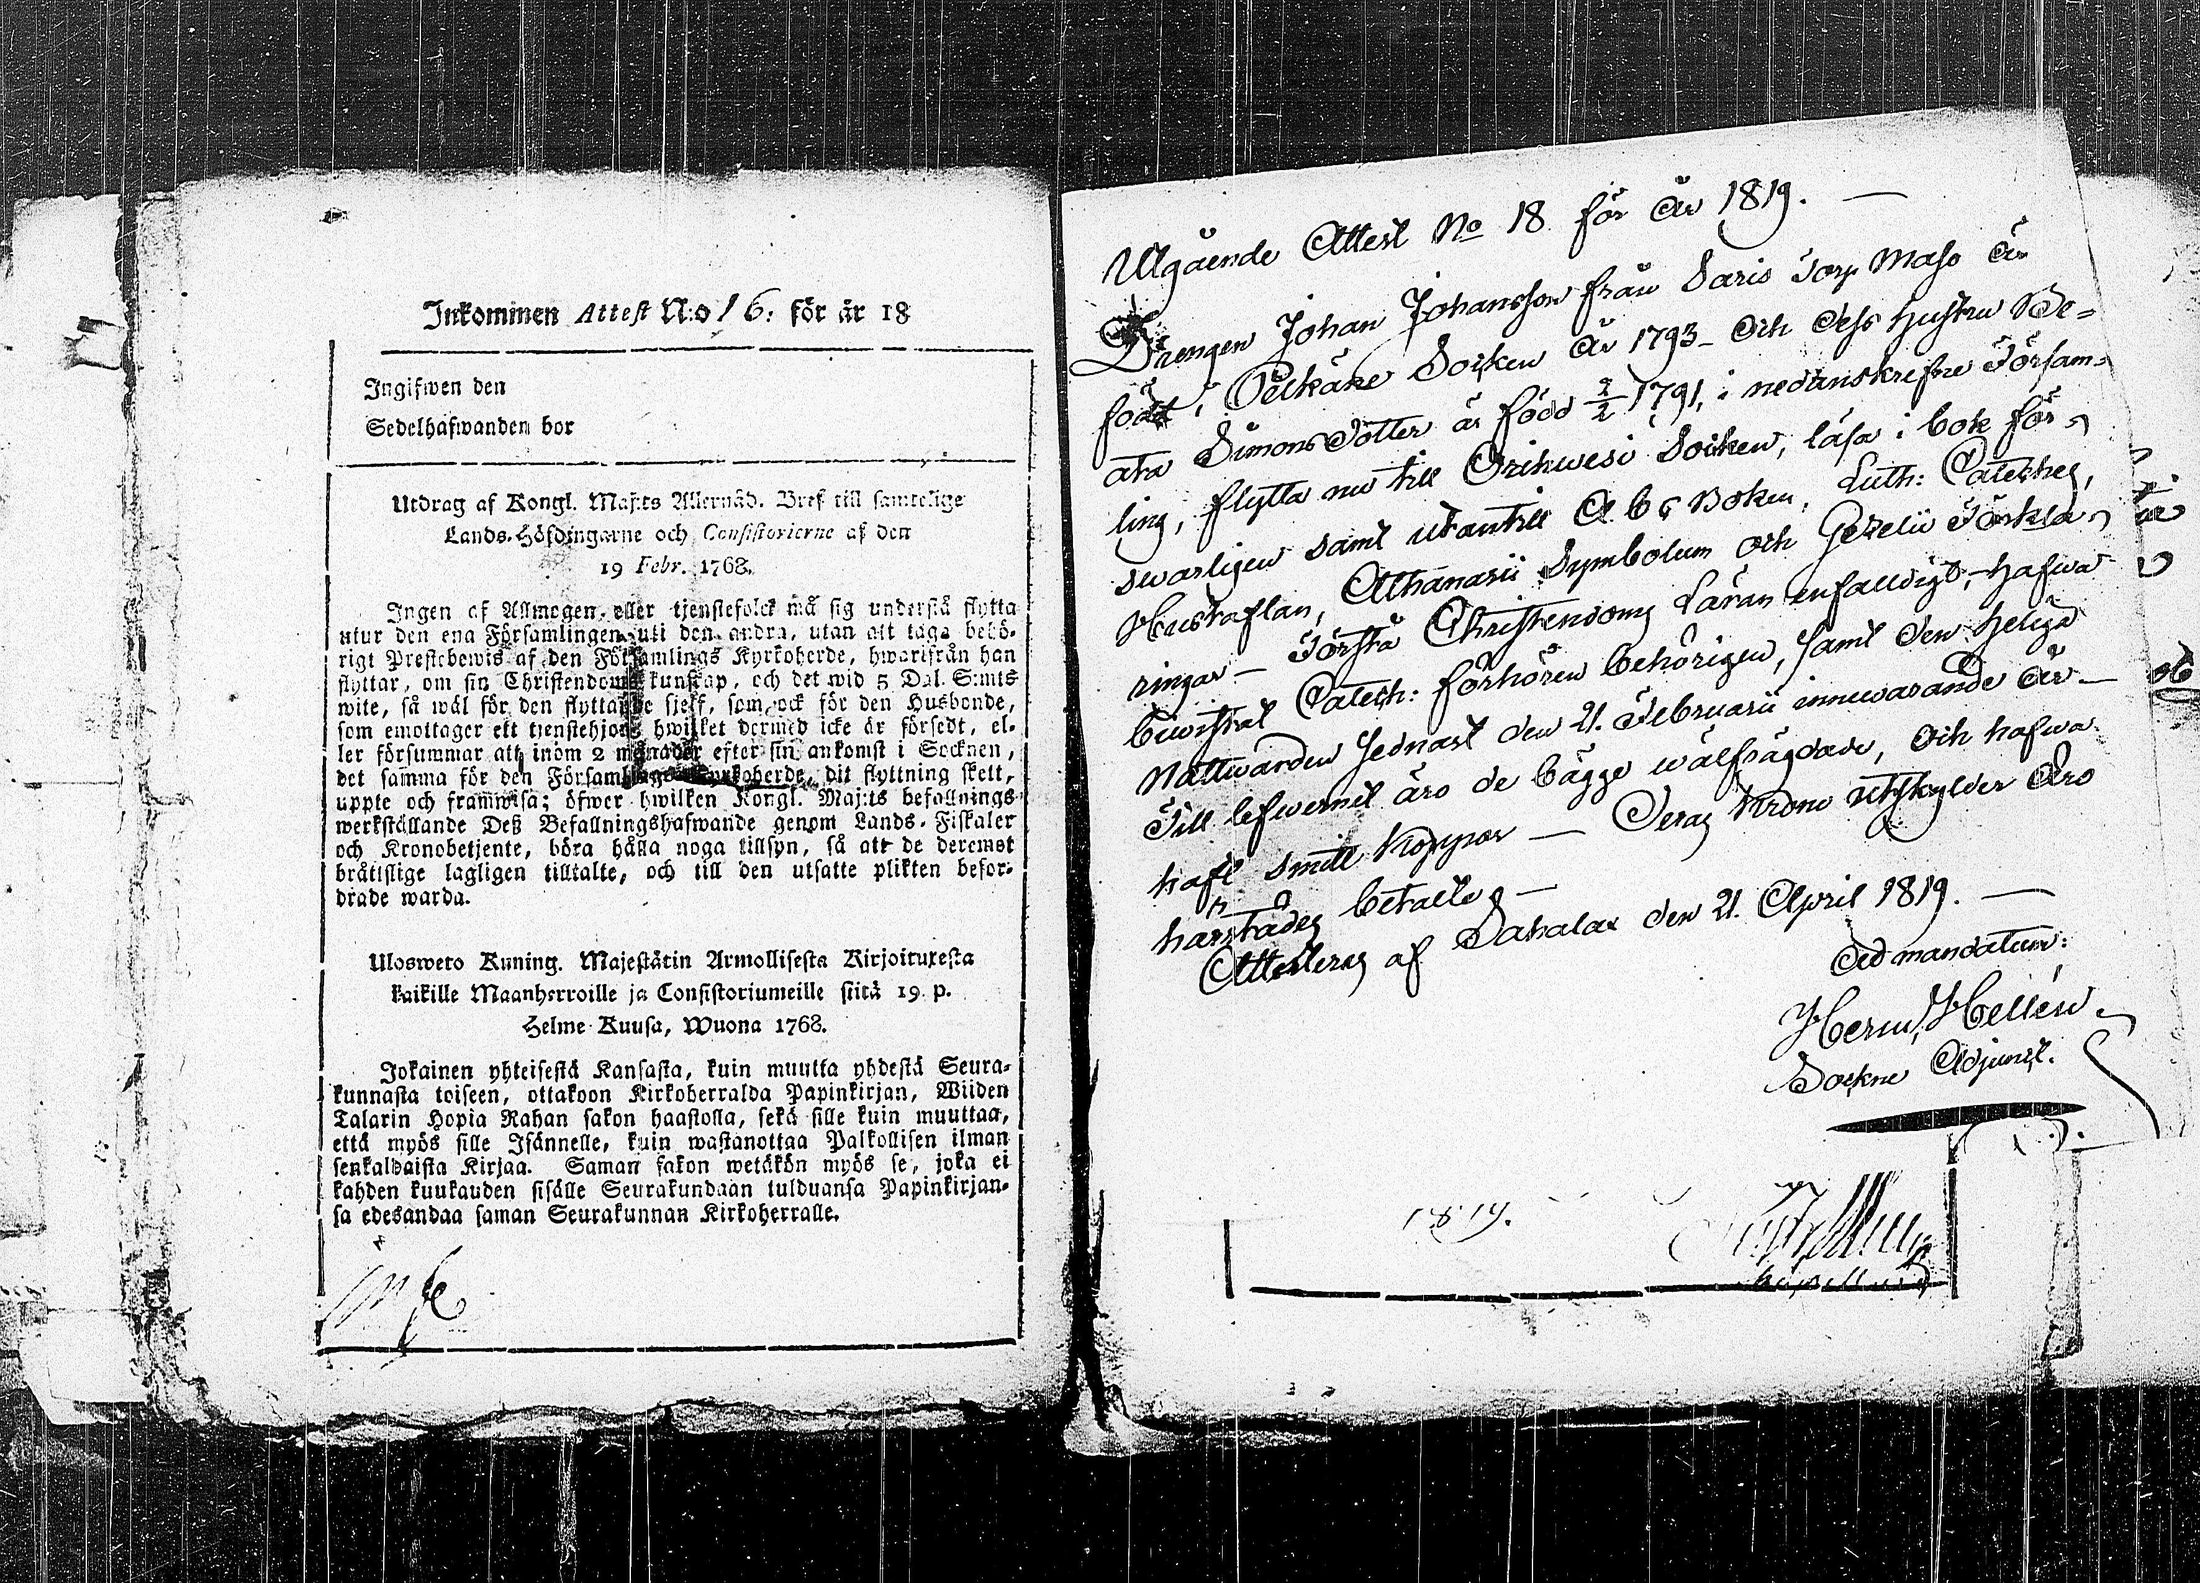 Inkommen Attest N:o 16. för år 18
Ingifwen den
Sedelhafwanden bor
Utdrag af Kongl. Maj:ts Allernåd. Bref till samtelige
Lands-Höfdingarne och Consistorierne af den
19 Febr. 1768.
Ingen af Allmogen eller tjenstefolck må sig understå flytta
utur den ena Församlingen uti den andra, utan att taga behö-
rigt Prestebewis af den Församlings Kyrkoherde, hwarifrån han
flyttar, om sin Christendoms kunskap, och det wid 5 Dal. S:mts
wite, så wäl för den flyttande sjelf, som ock för den Husbonde,
som emottager ett tjenstehjon hwilket dermed icke är försedt, el-
ler försummar att inom 2 månader efter sin ankomst i Socknen,
det samma för den Församlings Kyrkoherde, dit flyttning skett,
uppte och framwisa; öfwer hwilken Kongl. Maj:ts befallnings
werkställande Deß Befallningshafwande genom Lands-Fiskaler
och Kronobetjente, böra hålla noga tillsyn, så att de deremot
bråtislige lagligen tilltalte, och till den utsatte plikten befor-
drade warda.
Ulosweto Kuning. Majestätin Armollisesta Kirjoituxesta
kaikille Maanherroille ja Consistoriumeille siitä 19. p.
Helme Kuusa, Wuona 1768.
Jokainen yhteisestä Kansasta, kuin muutta yhdestä Seura-
kunnasta toiseen, ottakoon Kirkoherralda Papinkirjan, Wiiden
Talarin Hopia Rahan sakon haastolla, sekä sille kuin muuttaa,
että myös sille Isännelle, kuin wastanottaa Palkollisen ilman
senkaldaista Kirjaa. Saman sakon wetäkön myös se, joka ei
kahden kuukauden sisälle Seurakundaan tulduansa Papinkirjan-
sa edesandaa saman Seurakunnan Kirkoherralle.
Utgående Attest No 18 för År 1819.
Drengen Johan Johansson från Saris Torp Maso är
född i Pelkäne Socken År 1793 och dess Hustru Be-
ata Simons Dotter är född 2/2 1791, i nedanskrefne Församl-
ling, flytta nu till Orihwesi Socken, läsa i bok för-
swarligen samt utantill A b c Boken, Luth: Cateches,
Hustaflan, Athanasii Symbolum och Gezelii Förkla-
ringar - Förstå Christendoms Läran enfaldigt, - hafwa
biwistat Catech: förhören behörigen, samt den Heliga
Nattwarden sednast den 21. Februarii innewarande År -
Till lefwernet äro de bägge wälfrägdade, och hafwa
haft smitt Koppor - Deras Krono utskylder äro
härstädes betalte -
Attesteras af Sahalax den 21. April 1819.
Ad mandatum:
Herm, Hellén
Sockne Adjunct.
1819.